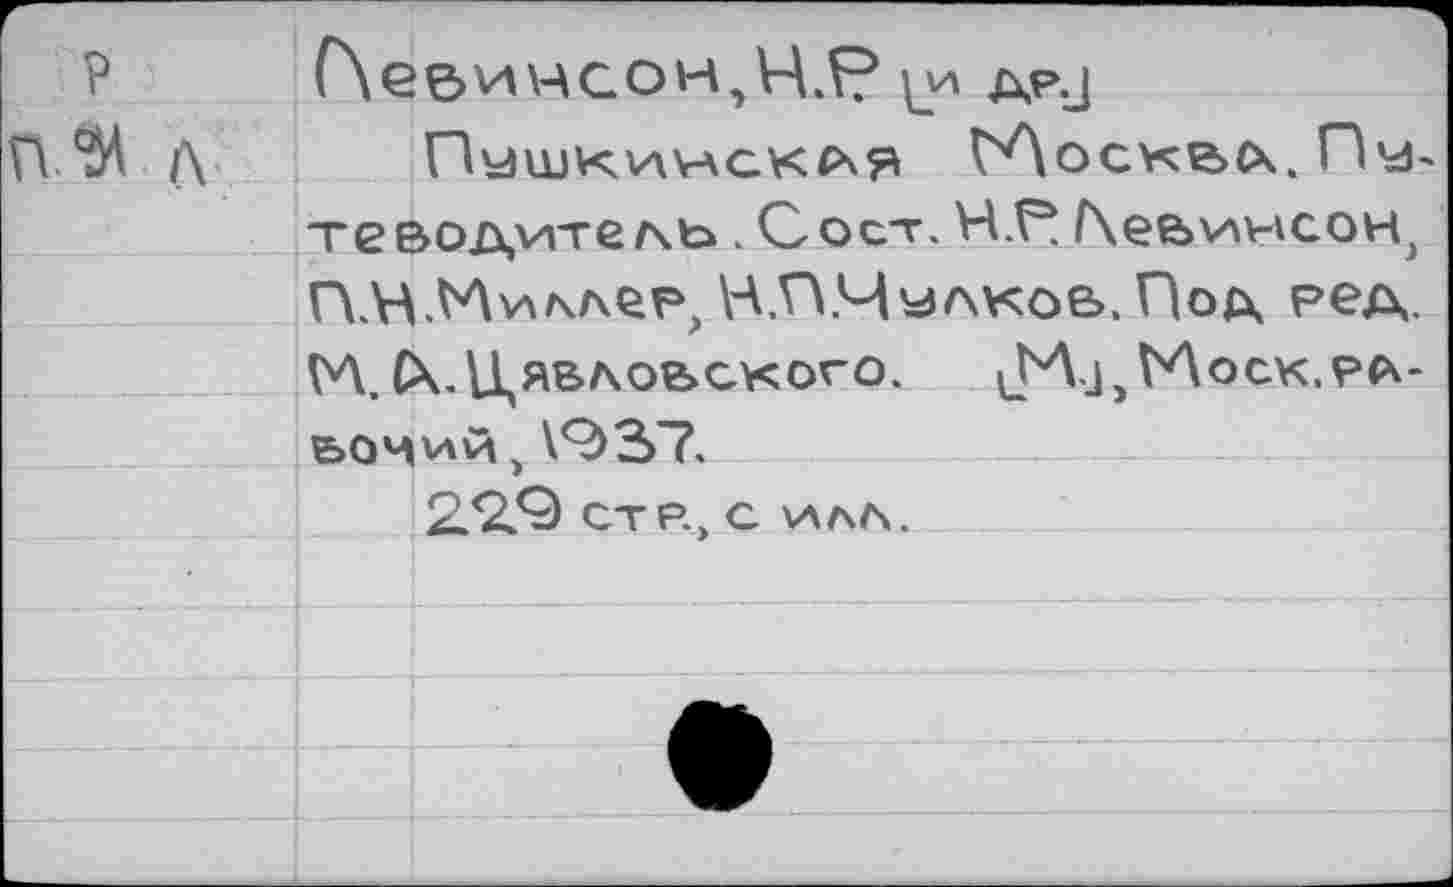 Р
Левинсон, Н.Р. [и др.]
П.91 Л
Пушкинская Москва. Пу-
теводитель. Сост. Н.Р. Левинсон,
П.Н.Миллер, Н.П.Чулков. Под ред.
М.А.Цявловского. [М.], Моск.ра-
бочий, 1937.
229 стр., с илл.